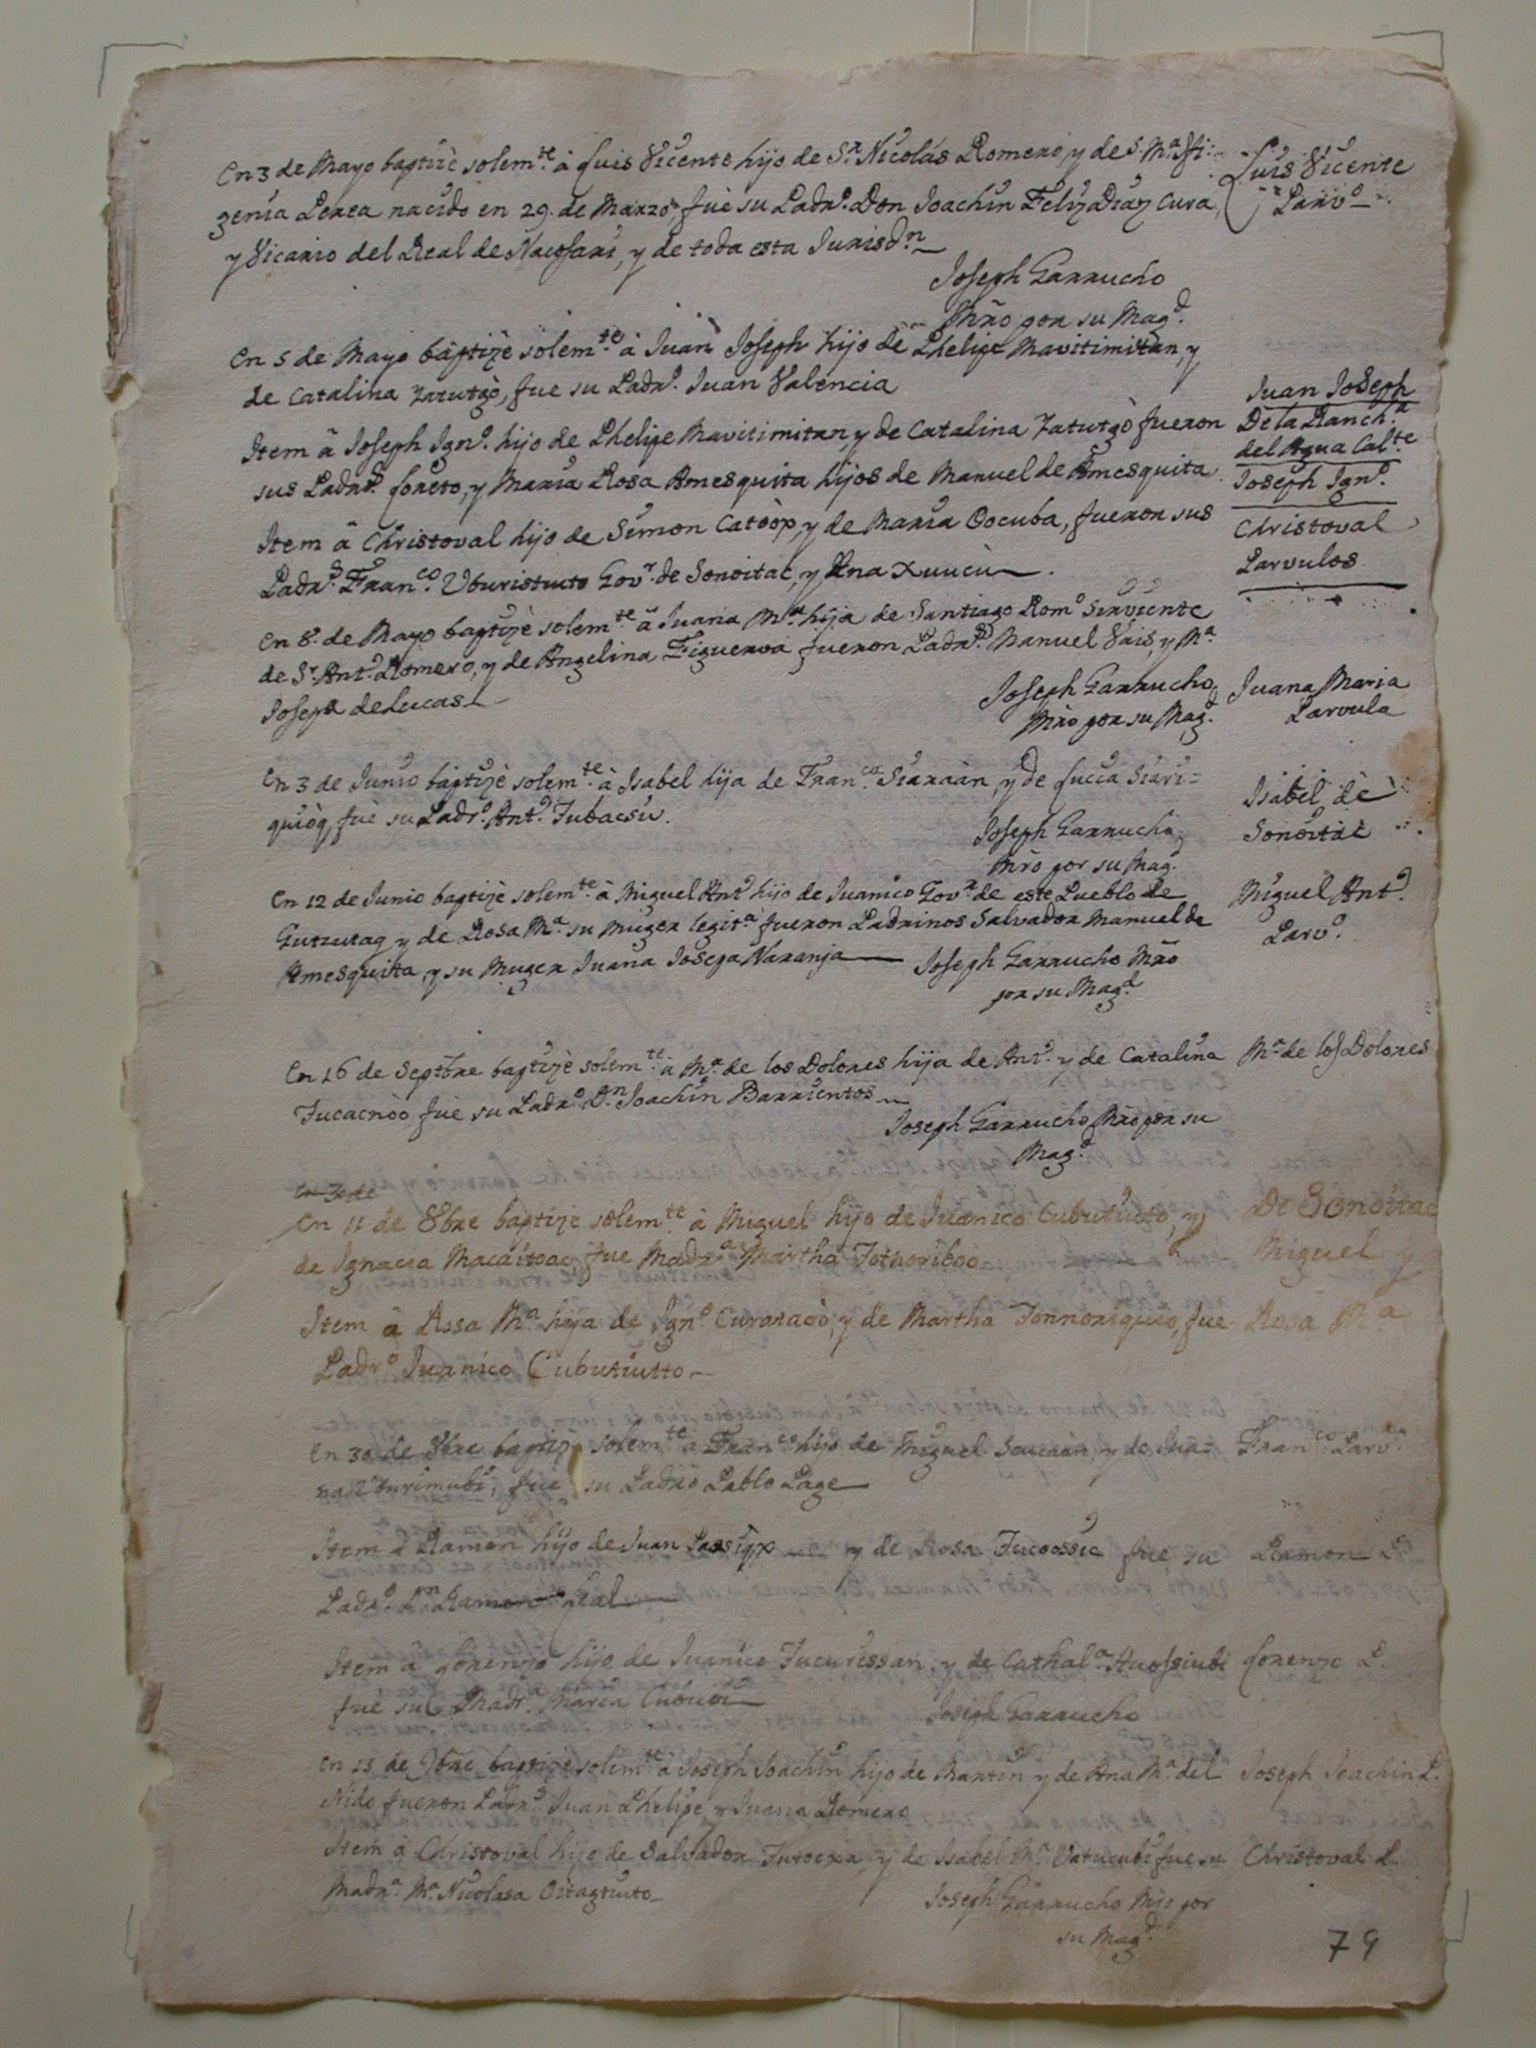 En 3 de Mayo baptizè solem.te à Luis Vicente hijo de S.r Nicolás Romero, y de S. M.a Ifi-
genia Perea nacido en 29. de Marzo fuè su Padr.o Don Joachin Feliz Diaz Cura,
y Vicario del Real de Nacosari, y de toda esta Jurisd.n
Luis Vicente
Parv.o
Joseph Garrucho
Mrõ por su Mag.d
En 5 de Mayo baptizè solem.te à Juan Joseph hijo dè Phelipe Mavitimitan, y
de Catalina Zatutgò, fue su Padr.o Juan Valencia
Juan Joseph
De la Ranch.a
del Agua Cal.te
Item â Joseph Ign.o hijo de Phelipe Mavitimitan, y de Catalina Zatutgò fueron
sus Padr.s Loreto, y Maria Rosa Amesquita hijos de Manuel de Amesquita
Joseph Ign.o
Item â Christoval hijo de Simon Catòòp, y de Maria Oocuba, fueron sus
Padr.s Fran.co Uburistuto Gov.r de Sonoitac, y Ana Xuucu
Christoval
Parvulos
En 8. de Mayo baptizè solem.te â Juana M.a hija de Santiago Rom.o Sirviente
de S.r Ant.o Romero, y de Angelina Figueroa fueron Padr.s Manuel Vais, y M.a
Josepa de Lucas
Joseph Garrucho
Mrõ por su Mag.d
Juana Maria
Parvula
En 3 de Junio baptizè solem.te à Isabel hija de Fran.co Siaraàn, y de Lucia Siari=
quiòq, fuè su Padr.o Ant.o Tubacsu.
Joseph Garrucho
Mrõ por su Mag.
Isabel dè
Sonoitac
En 12 de Junio baptizè solem.te à Miguel Ant.o hijo de Juanico Gov.r de este Pueblo de
Gutzutaq y de Rosa M.a su Muger legit.a fueron Padrinos Salvador Manuel de
Amesquita, y su Muger Juana Josepa Naranja
Joseph Garrucho Mrõ
por su Mag.d
Miguel Ant.o
Parv.o
En 16 de Septbre baptizè solem.te à M.a de los Dolores hija de Ant.o y de Catalina
Tucacnòo fuè su Padr.o D.n Joachin Barrientos
M.a de los Dolores
Joseph Garrucho Mrõ por su
Mag.d
En 30 de
En 11 de 8bre baptizè solem.te à Miguel hijo de Juanico Cubutuuto, y
de Ignacia Macaitoac fue Madr.a Martha Tothoriboo
De Sonoitac
Miguel y
Item à Rosa M.a hija de Ign.o Curatacò, y de Martha Tonnoriquio, fue
Padr.o Juanico Cubutiutto
Rosa M.a
En 30 de 8bre baptizè solem.te à Fran.co hijo de Miguel Scucaàn, y de Jua-
na Uturimubi, fuè su Padrõ Pablo Page
Fran.co Parv.o
Item à Ramon hijo de Juan Passiqx y de Rosa Tucoossic fue su
Padr.o D.n Ramon Leal
Ramon P.
Item â Lorenzo hijo de Juanico Tucurissan, y de Cathal.a Huossiubi
fuè su Madr.a Maria Cububi
Lorenzo P.
Joseph Garrucho
En 13 de 9bre baptizè solem.te à Joseph Joachin hijo de Martin y de Ana M.a del
Nido fueron Padr.s Juan Phelipe, y Juana Romero
Joseph Joachin P.
Item à Christoval hijo de Salvador Tutoexa, y de Isabel M.a Vatucubi fue su
Madr.a M.a Nicolasa Oitagtuuto
Christoval P.
Joseph Garrucho Mrõ por
su Mag.d
79